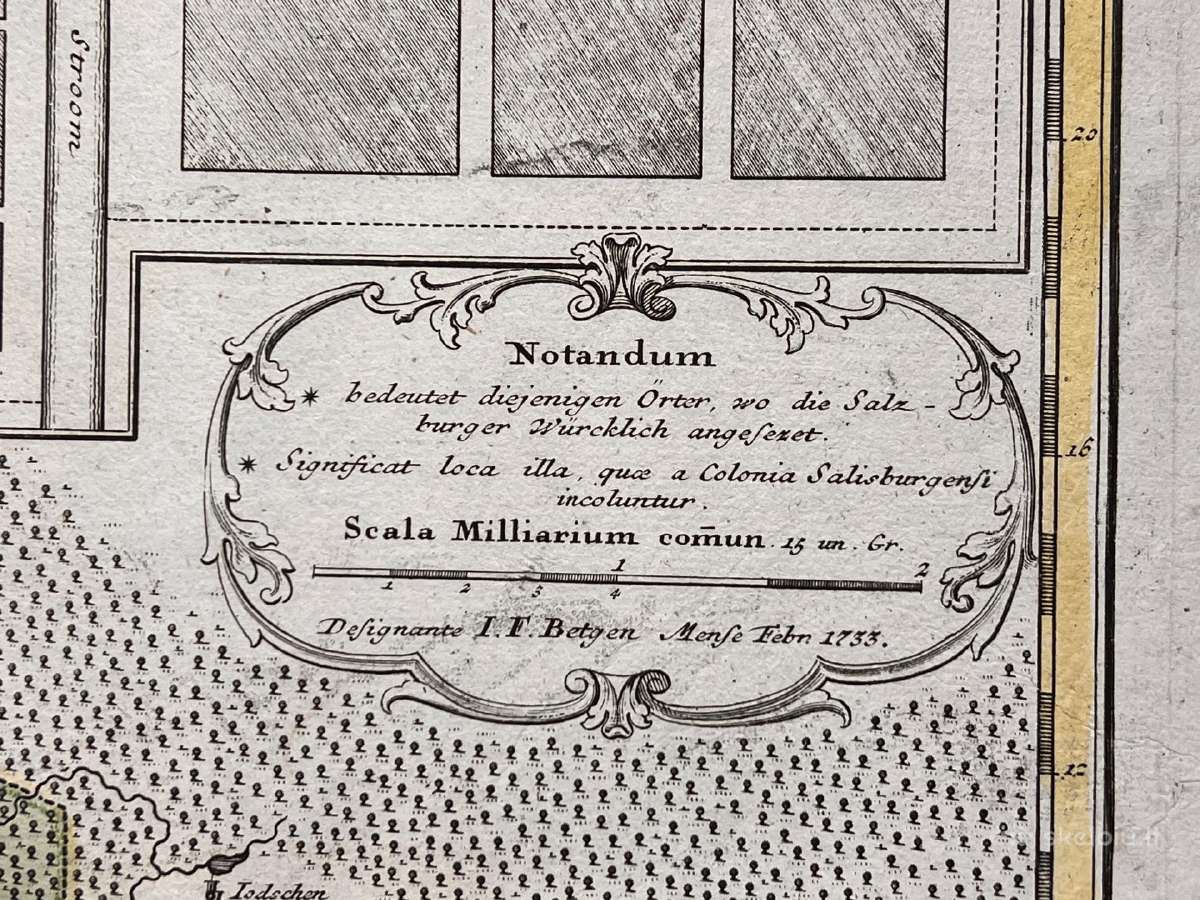 Stroom
20
Notandum
* bedeutet diejenigen Örter, wo die Salz-
burger Würcklich angeſezet.
* Significat loca illa, quæ a Colonia Salisburgenſi
incoluntur.
16
Scala Milliarium com̄un. 15 un. Gr.
1 2
1 2 3 4
Deſignante I. F. Betgen Menſe Febr 1733.
12
Iodschen